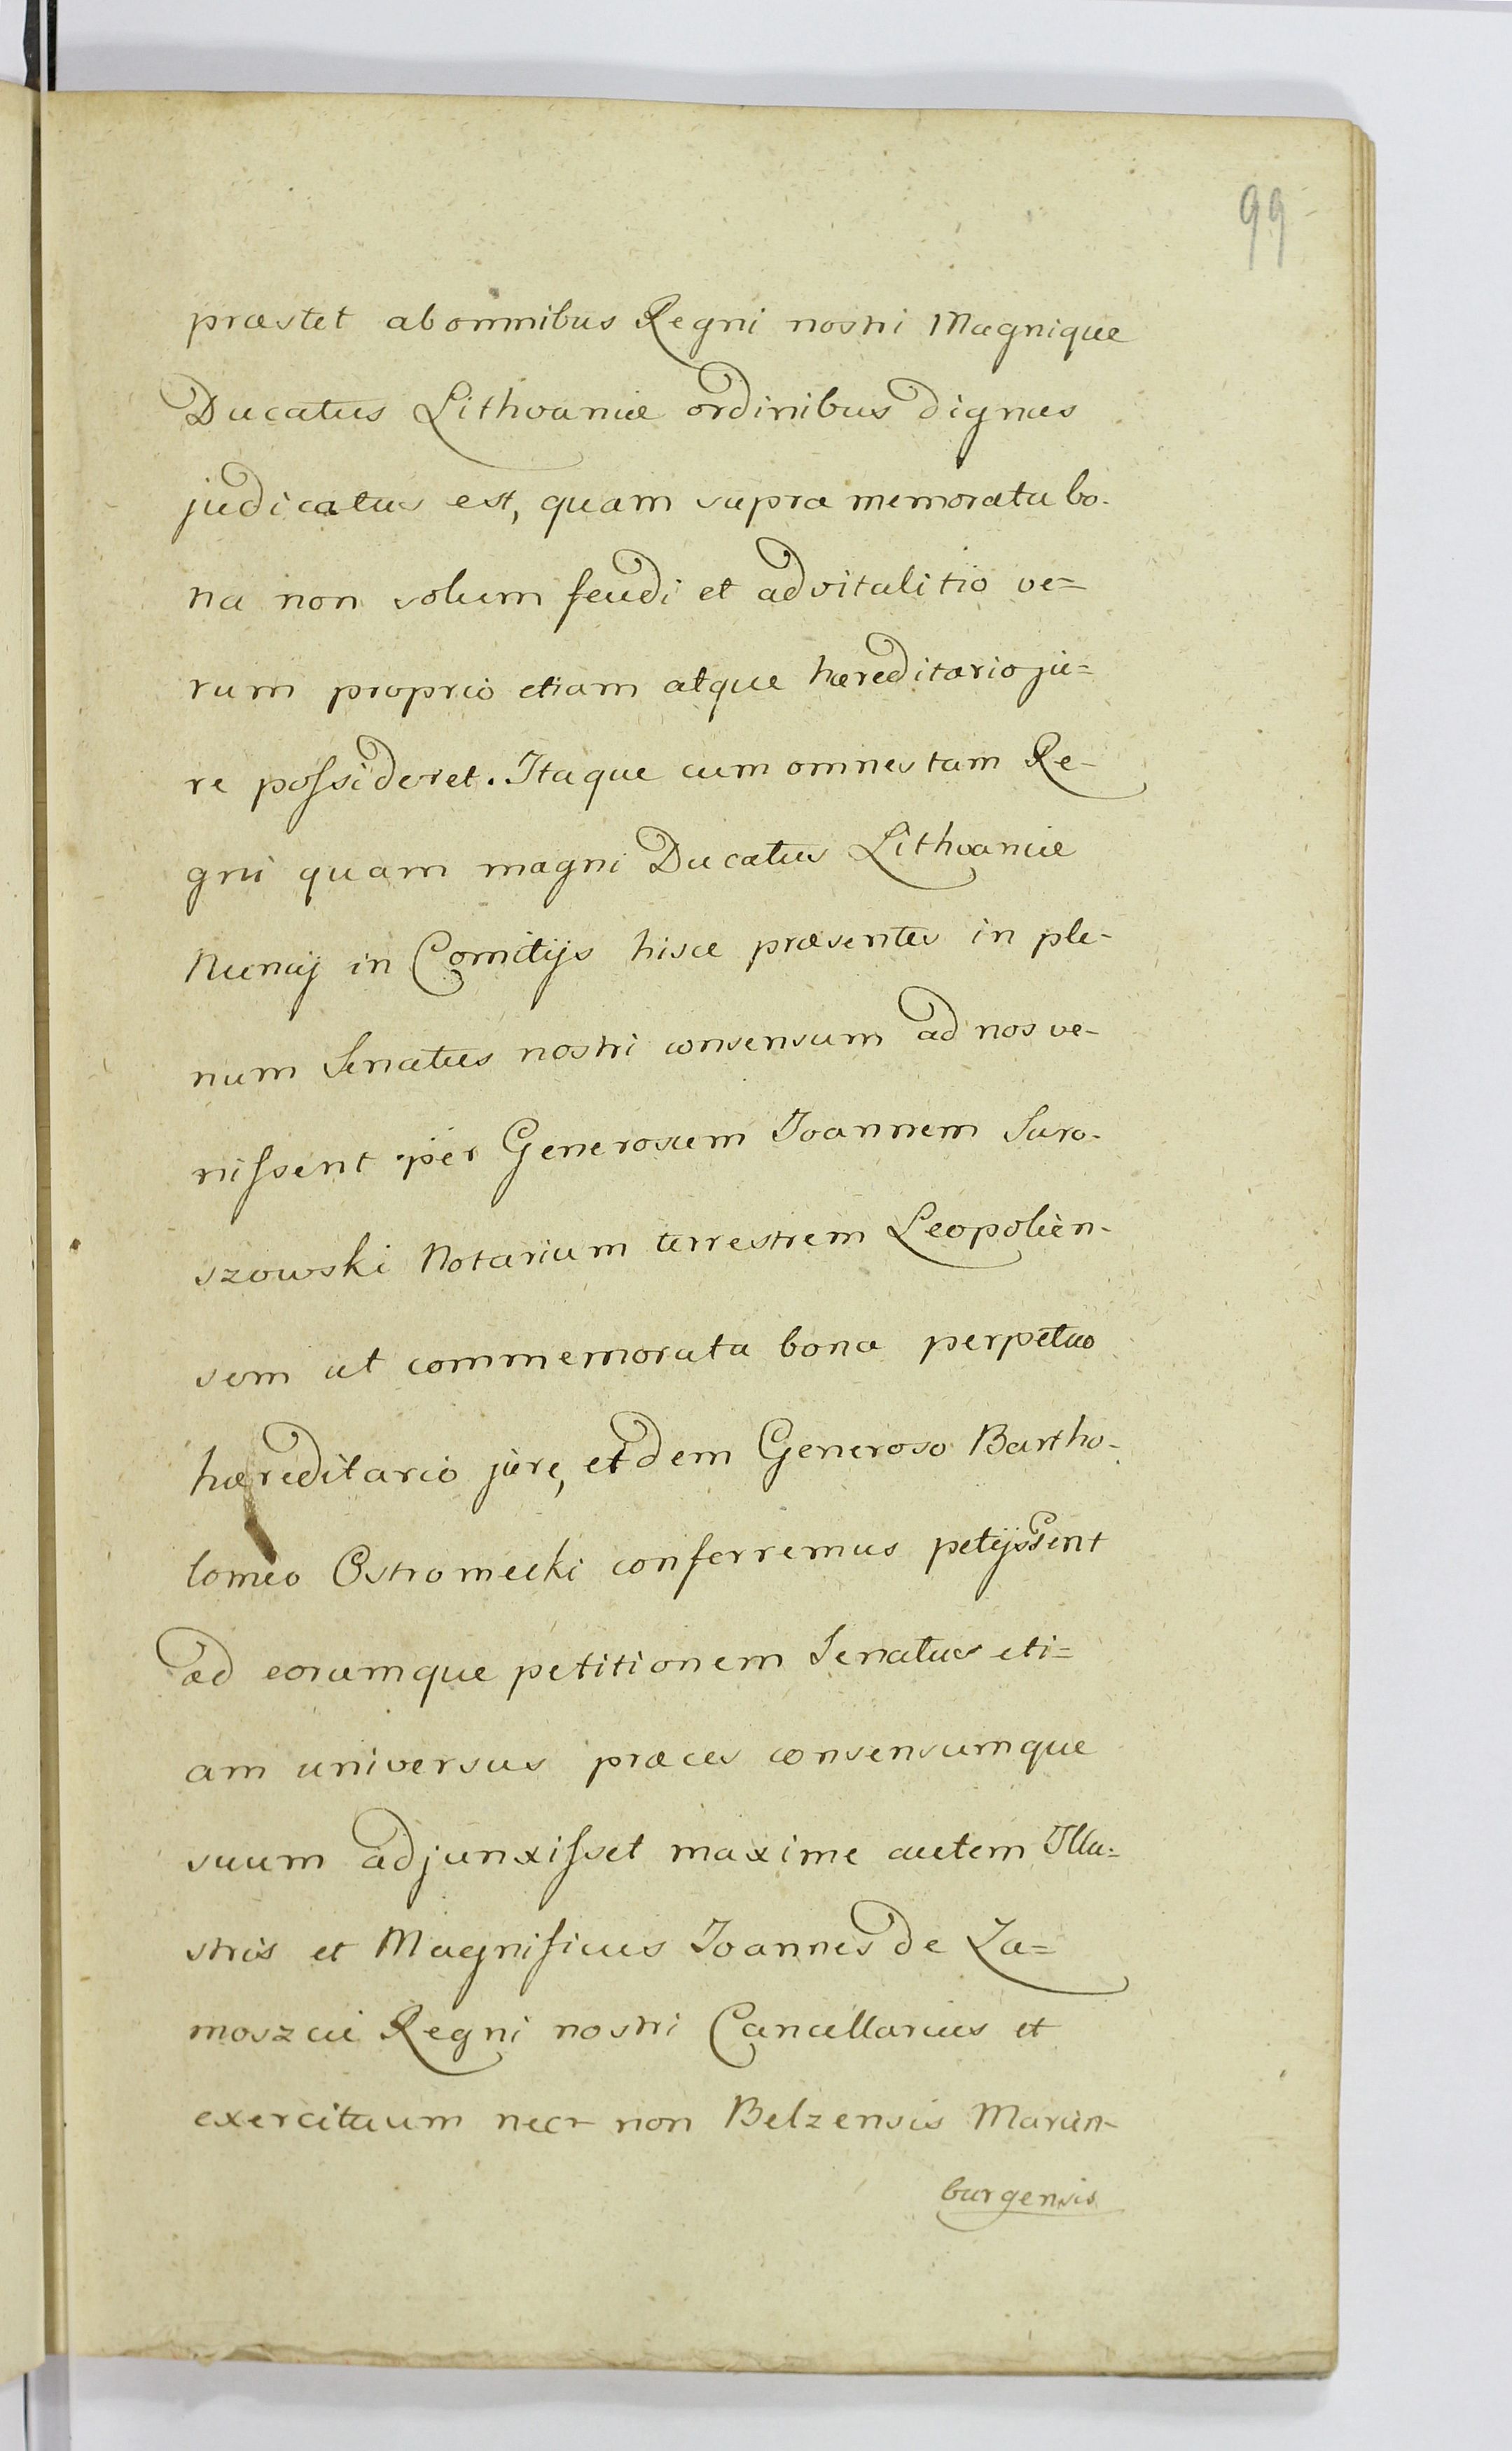 99
præstet ab omnibus Regni nostri Magnique
Ducatus Lithvaniæ ordinibus dignus
judicatus est, quam supra memorata bo-
na non solum feudi et advitalitio ve=
rum proprio etiam atque hæreditario ju=
re possideret. Itaque cum omnes tam Re-
gni quam magni Ducatus Lithvaniæ
Nuncij in Comitijs hisce præsentes in ple-
num Senatus nostri consensum ad nos ve-
nissent per Generosum Joannem Saro-
szowski Notarium terrestrem Leopolien-
sem ut commemorata bona perpetuo
hæreditario jure, eidem Generoso Bartho-
lomeo Ostromecki conferremus petijssent
ad eorumque petitionem Senatus eti=
am universus præces consensumque
suum adjunxisset maxime autem Illu=
stris et Magnificus Joannes de Za=
moszcie Regni nostri Cancellarius et
exercituum nec non Belzensis Marien-
burgensis